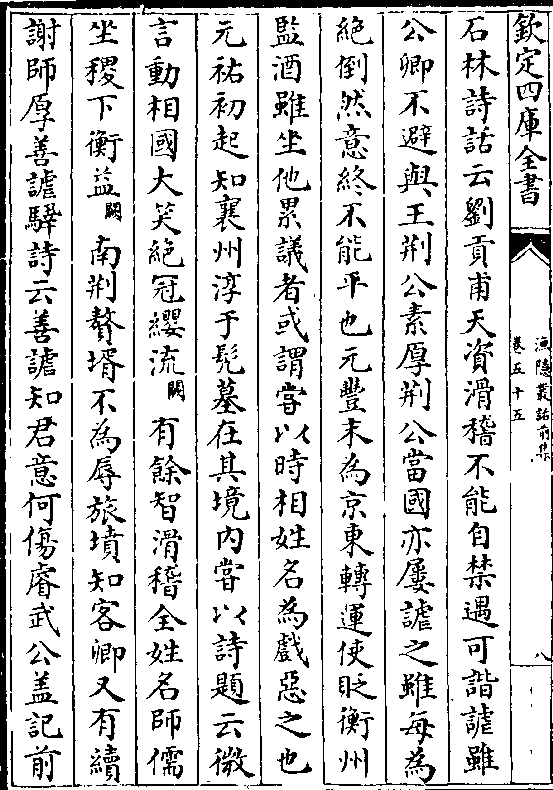 欽定四庫全書
漁隱叢話前集
卷五十五
八
石林詩話云劉貢甫天資滑稽不能自禁遇可諧謔雖
公卿不避與王荆公素厚荆公當國亦屢謔之雖每為
絶倒然意終不能平也元豐末為京東轉運使貶衡州
監酒雖坐他累議者或謂嘗以時相姓名為戲惡之也
元祐初起知襄州淳于髠墓在其境内嘗以詩題云微
言動相國大笑絶冠纓流闕有餘智滑稽全姓名師儒
坐稷下衡益闕南荆贅壻不為辱旅墳知客卿又有續
謝師厚善謔驛詩云善謔知君意何傷睿武公盖記前